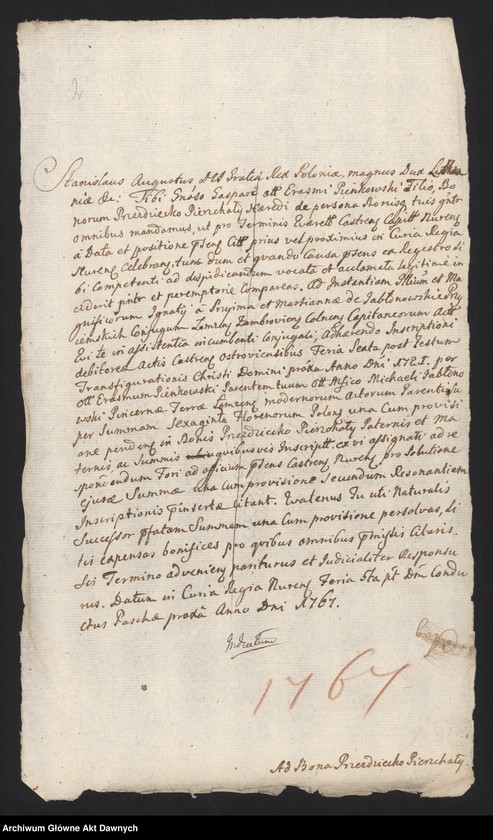 2
Stanislaus Augustus, DEI Gratia Rex Poloniæ, magnus Dux Lithua
niæ &c: Tibi Gnoso Gaspari olt Erasmi Pienkowski Filio, Bo
norum Przezdziecko Pierzchały Hæredi de persona Bonisq tuis gntr
omnibus mandamus, ut pro Terminis Querell Castren Capitt Nurens
à Data et positione pntis Citt prius vel proximius in Curia Regia
Nurens Celebran, tunc dum et quando Causa pntens ex Regestro si
bi Competenti ad dijudicandum vocata et acclamata legitime in
ciderit pntr et peremptorie Compareas. Ad Instantiam Illium et Ma
gnificorum Ignatij à Srujma et Marianne de Jabłonowskie Prz
iemskich Conjugum Lomzens Zambroviens Colnens Capitaneorum Act
Eui te in assistentia incumbenti Conjugali, adhærendo Inscriptioni
debitoreæ Actis Castren Ostroviensibus Feria Sexta post Festum
Transfigurationis Christi Domini proxa Anno Dni 1721. per
olt Erasmum Pienkowski Parentem tuum olt Mfico Michaeli Jabłono
wski Pincernæ Terræ Lomzens modernorum Actorum Parenti su
per Summam Sexaginta Florenorum Polens una Cum provisi
one penden in Bonis Przezdziecko Pierzchały Paternis et Ma
ternis, ac Summis quibusvis Inscriptt ex vi assignati ad re
spondendum Fori ad officium pntens Castren Nurens pro Solutione
ejusæ Summæ una cum provisione Secundum Resonantiam
Inscriptionis pinsertæ Citant. Quatenus Tu uti Naturalis
Successor pfatam Summam una Cum provisione persolvas, li
tis expensas bonifices pro quibus omnibus pmissis Citaris.
Sis Termino advenien pariturus et Judicialiter Responsu
rus. Datum in Curia Regia Nurens Feria 5ta pt Dm Condu
ctus Paschæ proxa Anno Dni 1767.
Indicatum
1767
Ad Bona Przezdziecko Pierzchały
Archiwum Główne Akt Dawnych